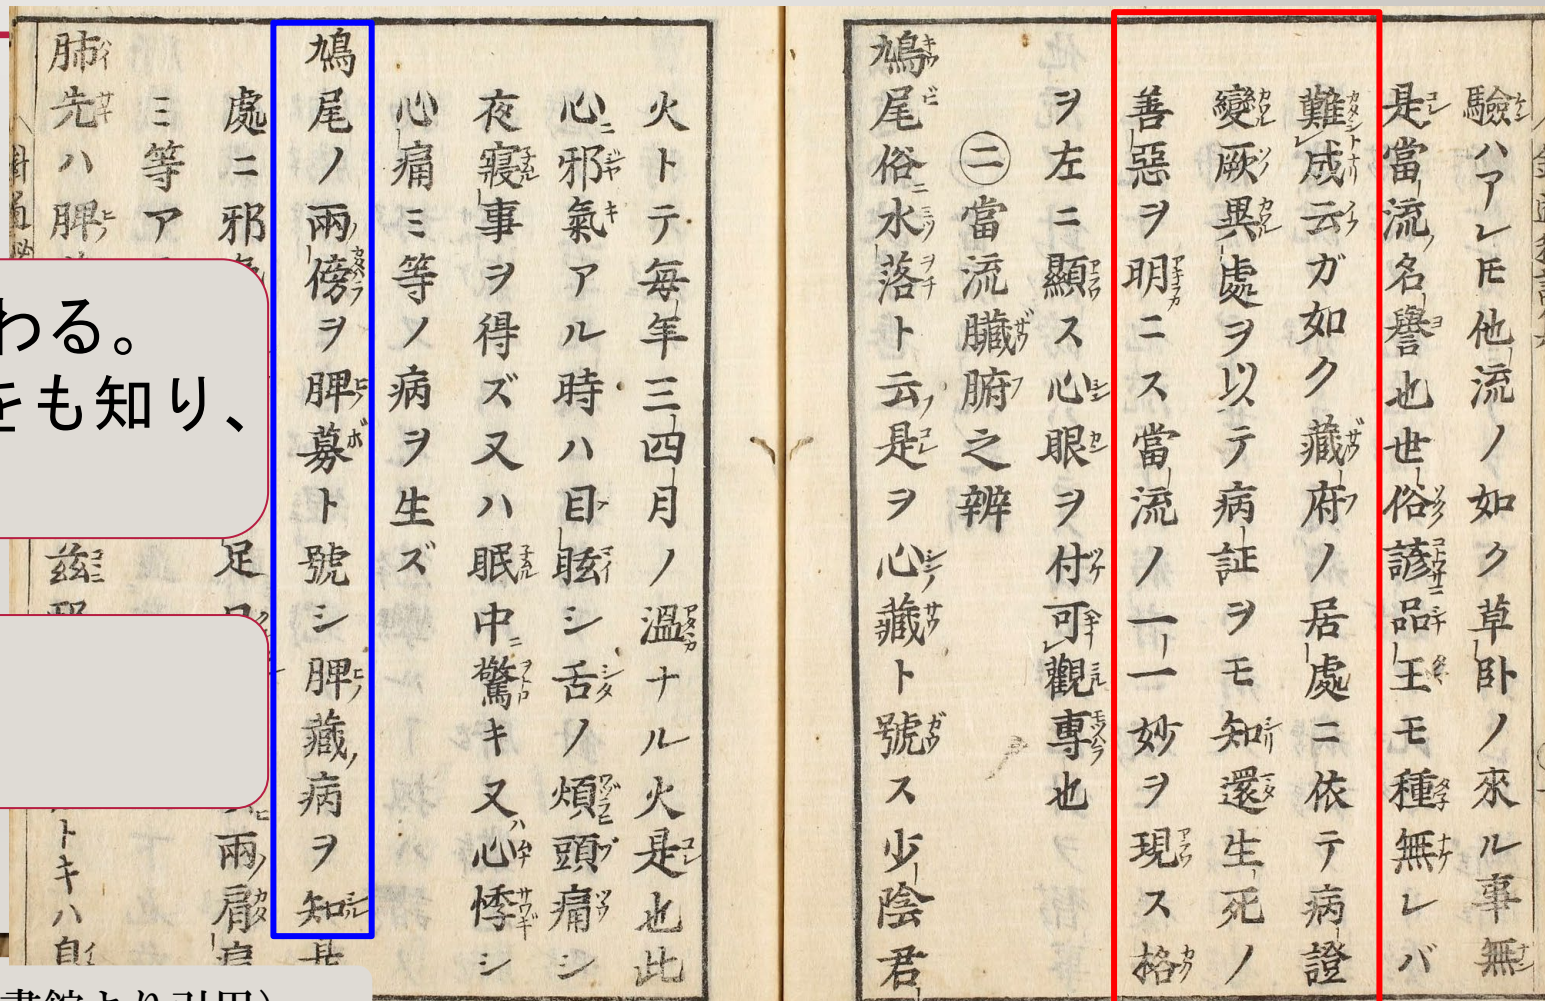 驗ハアレ𪜈他流ノ如ク草卧ノ來ル事無
是當流名譽也世俗諺品王モ種無レバ
難成云ガ如ク藏府ノ居處ニ依テ病證
變厥異處ヲ以テ病証ヲモ知還生死ノ
善惡ヲ明ニス當流ノ一一妙ヲ現ス格
ヲ左ニ顯ス心眼ヲ付可觀專也
㊁當流臟腑之辨
鳩尾俗水落ト云是ヲ心藏ト號ス少陰君
火トテ毎年三四月ノ溫ナル火是也此
心邪氣アル時ハ目眩シ舌ノ煩頭痛シ
夜寢事ヲ得ズ又ハ眠中驚キ又心悸シ
心痛ミ等ノ病ヲ生ズ
鳩尾ノ兩傍ヲ脾募ト號シ脾藏病ヲ知
處ニ邪
足
兩肩
ミ等ア
肺先ハ脾
茲
トキハ自
わる。
をも知り、
書館より引用）